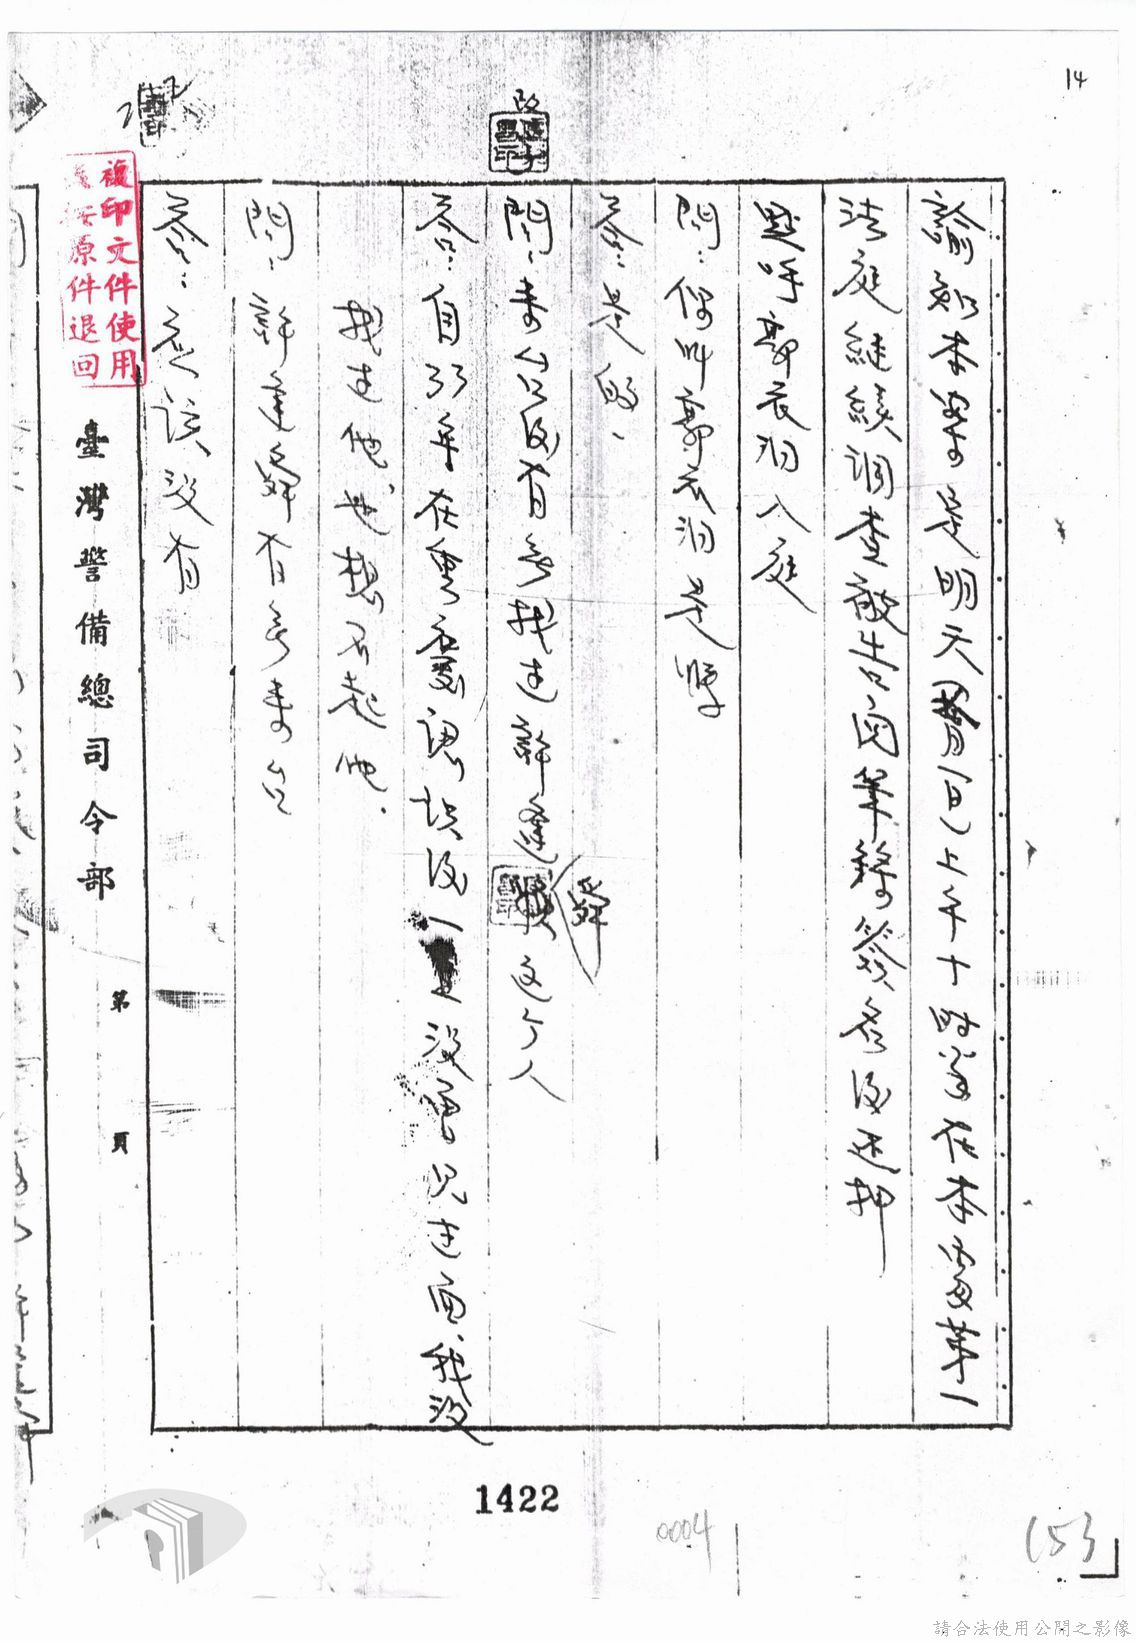 14
改
諭知本案是明天 上午十時半在本處第一
法庭繼續調查被告閱筆錄簽名後還押
點呼郭衣洞入庭
問：你叫郭衣洞是嗎
答：是的、
問：來台後有無找過 這個人
舜
答：自 33年在重慶認識後一 沒有見過面、我沒
找過他也想不起他．
問： 有無來台
答： 沒有
複印文件使用
原件退回
臺灣警備總司令部
第　頁
1422
0004
153
請合法使用公開之影像